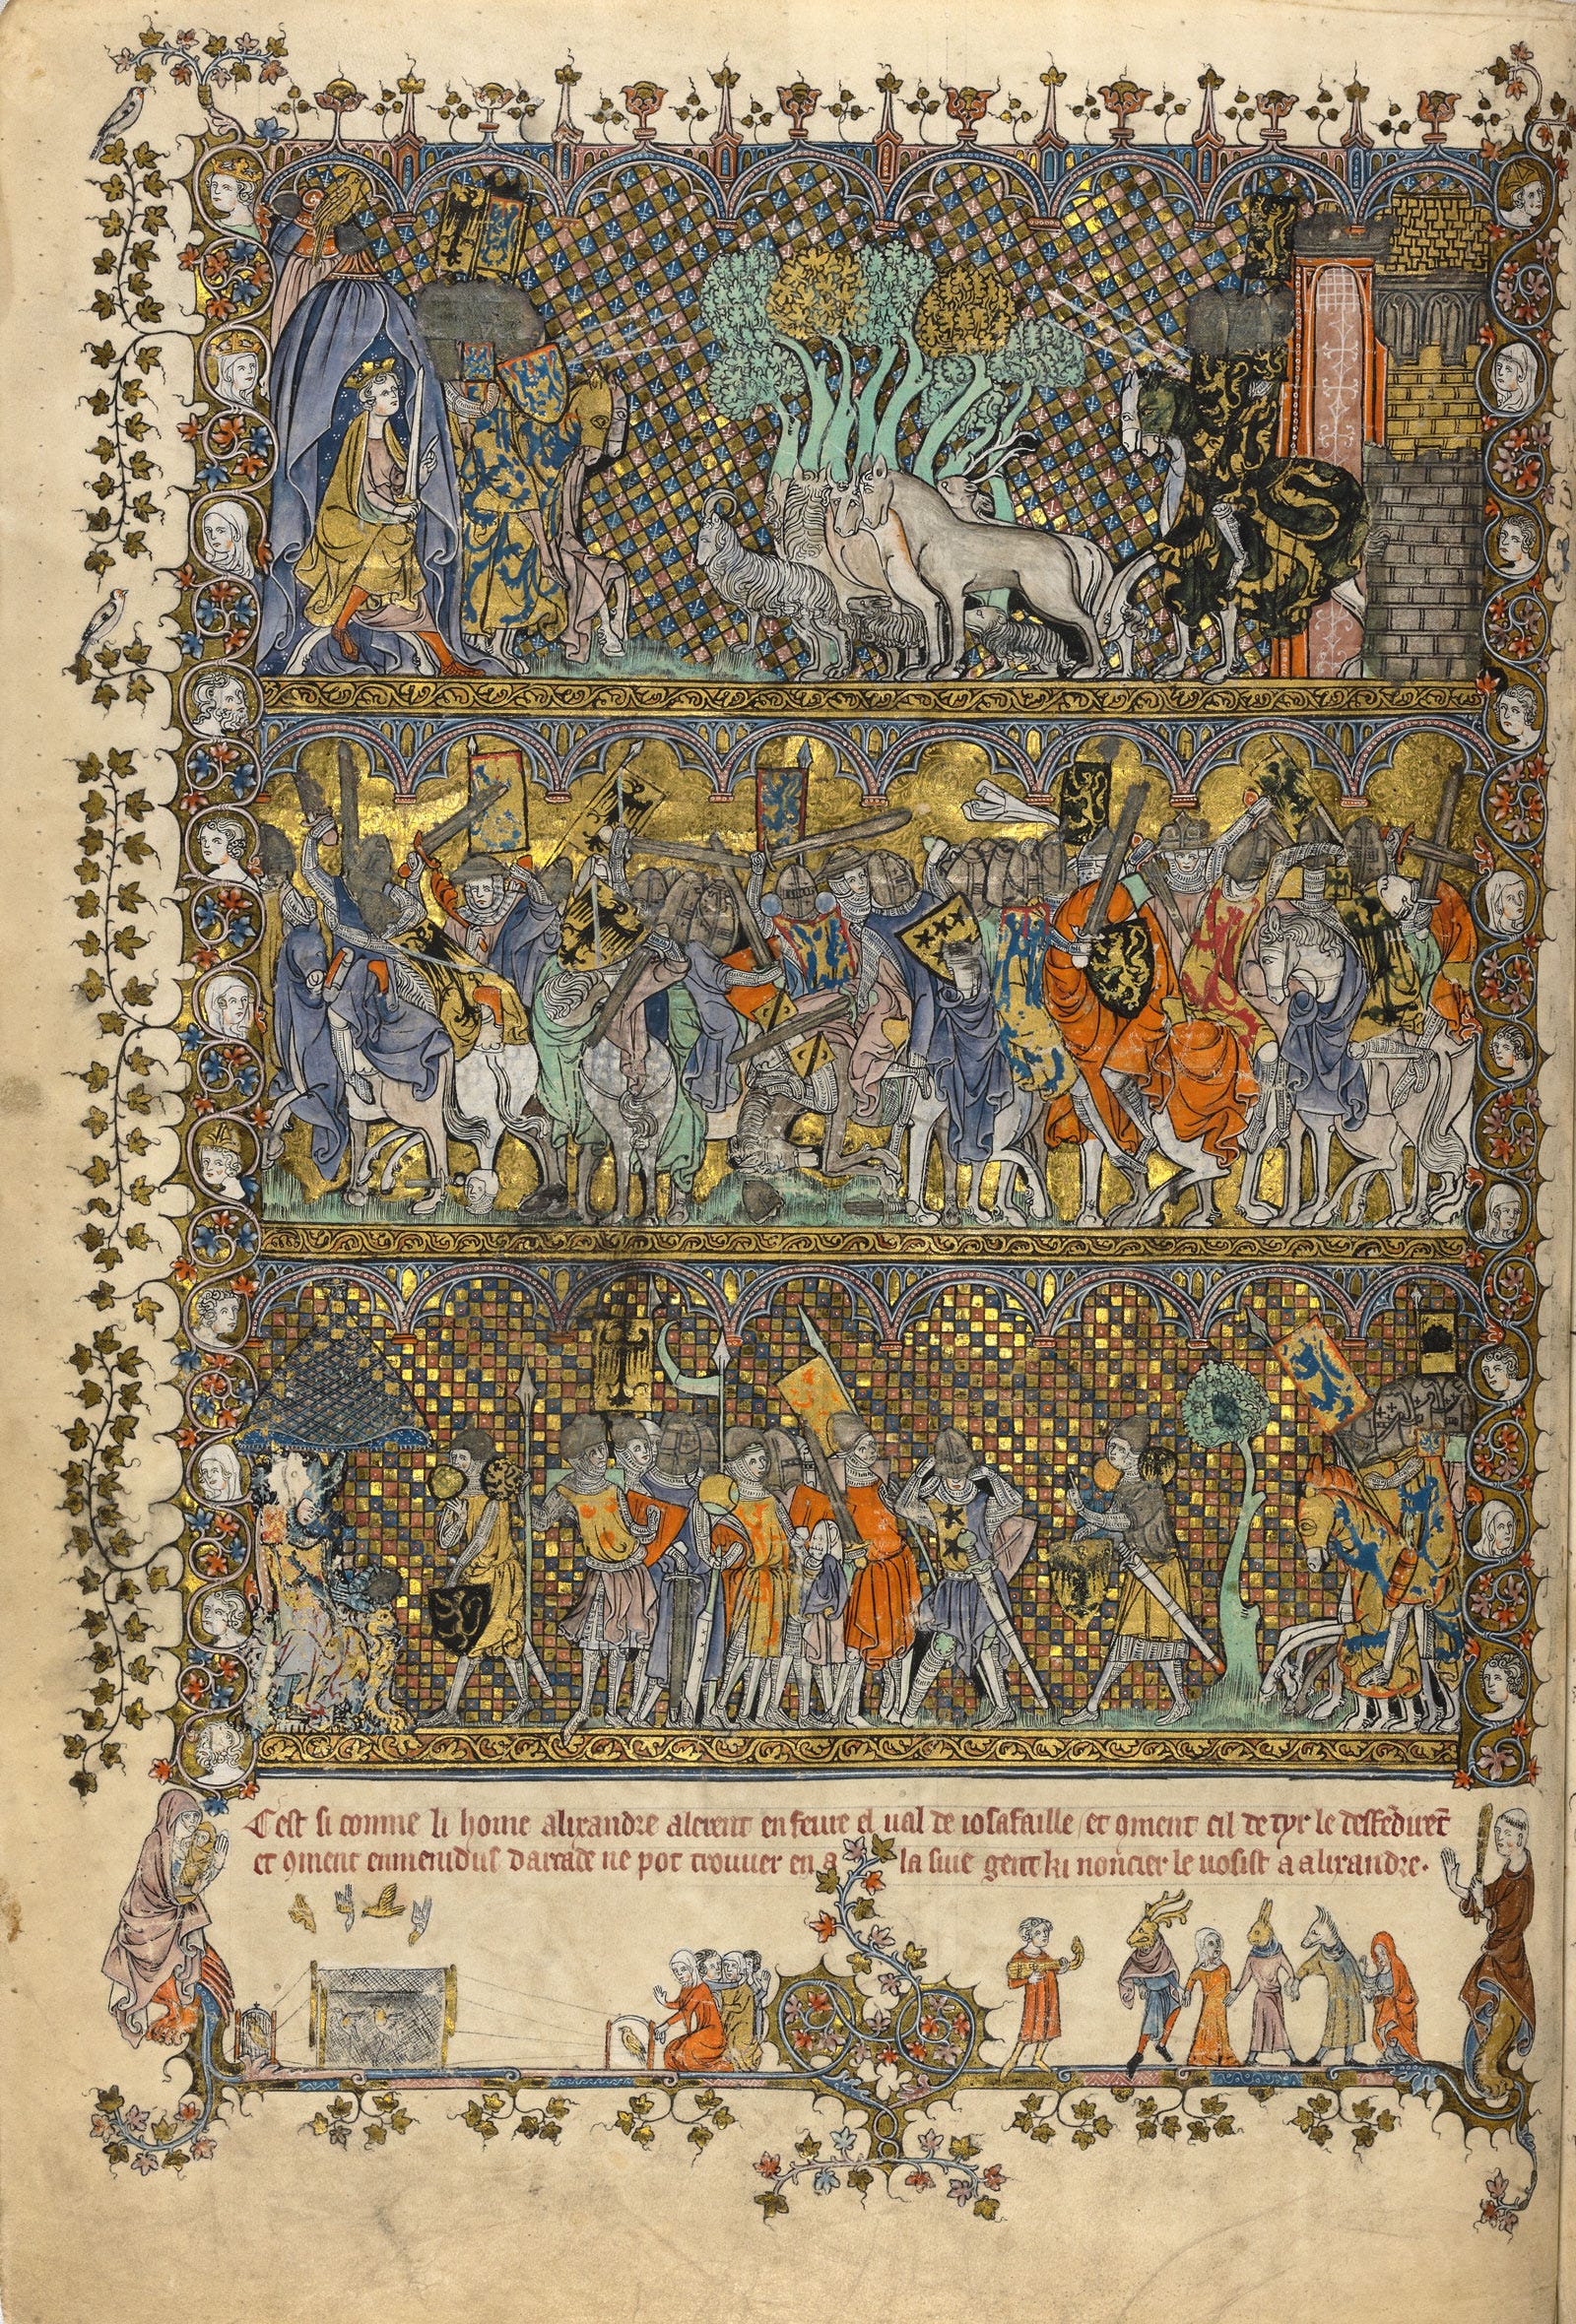 C'est si comme li home alixandre alerent en feure el ual de iosafaille / et 9ment cil de tyr le deffēdirēt
et 9ment enmenidus darcade ne pot trouuer en a la siue gent ki noncier le uosist a alixandre.